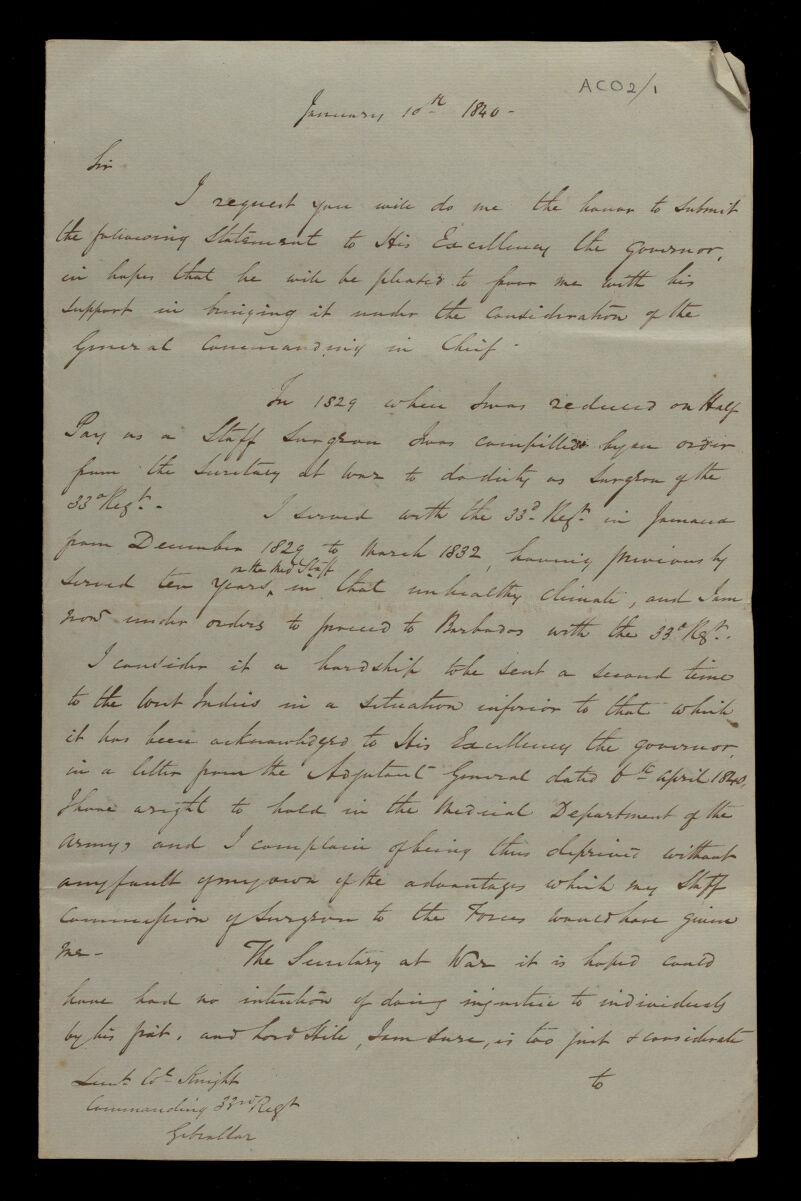 ACO2/1
January 10th 1840 -
Sir
I request you will do me the honor to submit
the following Statement to His Excellency the Governor,
in hopes that he will be pleased to favor me with his
support in bringing it under the consideration of the
General Commanding in Chief -
In 1829 when I was reduced on Half
Pay as a Staff Surgeon I was compelled by an order
from the Secretary at War to do duty as Surgeon of the
33d Regt. -
I served with the 33d. Regt. in Jamaica
from December 1829 to March 1832, having previously
on the Med Staff
served ten years, in that unhealthy climate, and I am
now under orders to proceed to Barbados with the 33d Regt.
I consider it a hardship to be sent a second time
to the West Indies in a situation inferior to that which
it has been acknowledged to His Excellency the Governor,
in a letter from the Adjutant General dated 6th April 1840,
I have a right to hold in the Medical Department of the
Army, and I complain of being thus deprived without
any fault of my own of the advantages which my Staff
Commission of Surgeon to the Forces would have given
me -
The Secretary at War it is hoped could
have had no intention of doing injustice to individuals
by his fiat, and Lord Hill, I am sure, is too just & considerate
to
Lieut. Col. Knight
Commanding 33rd Regt
Gibraltar